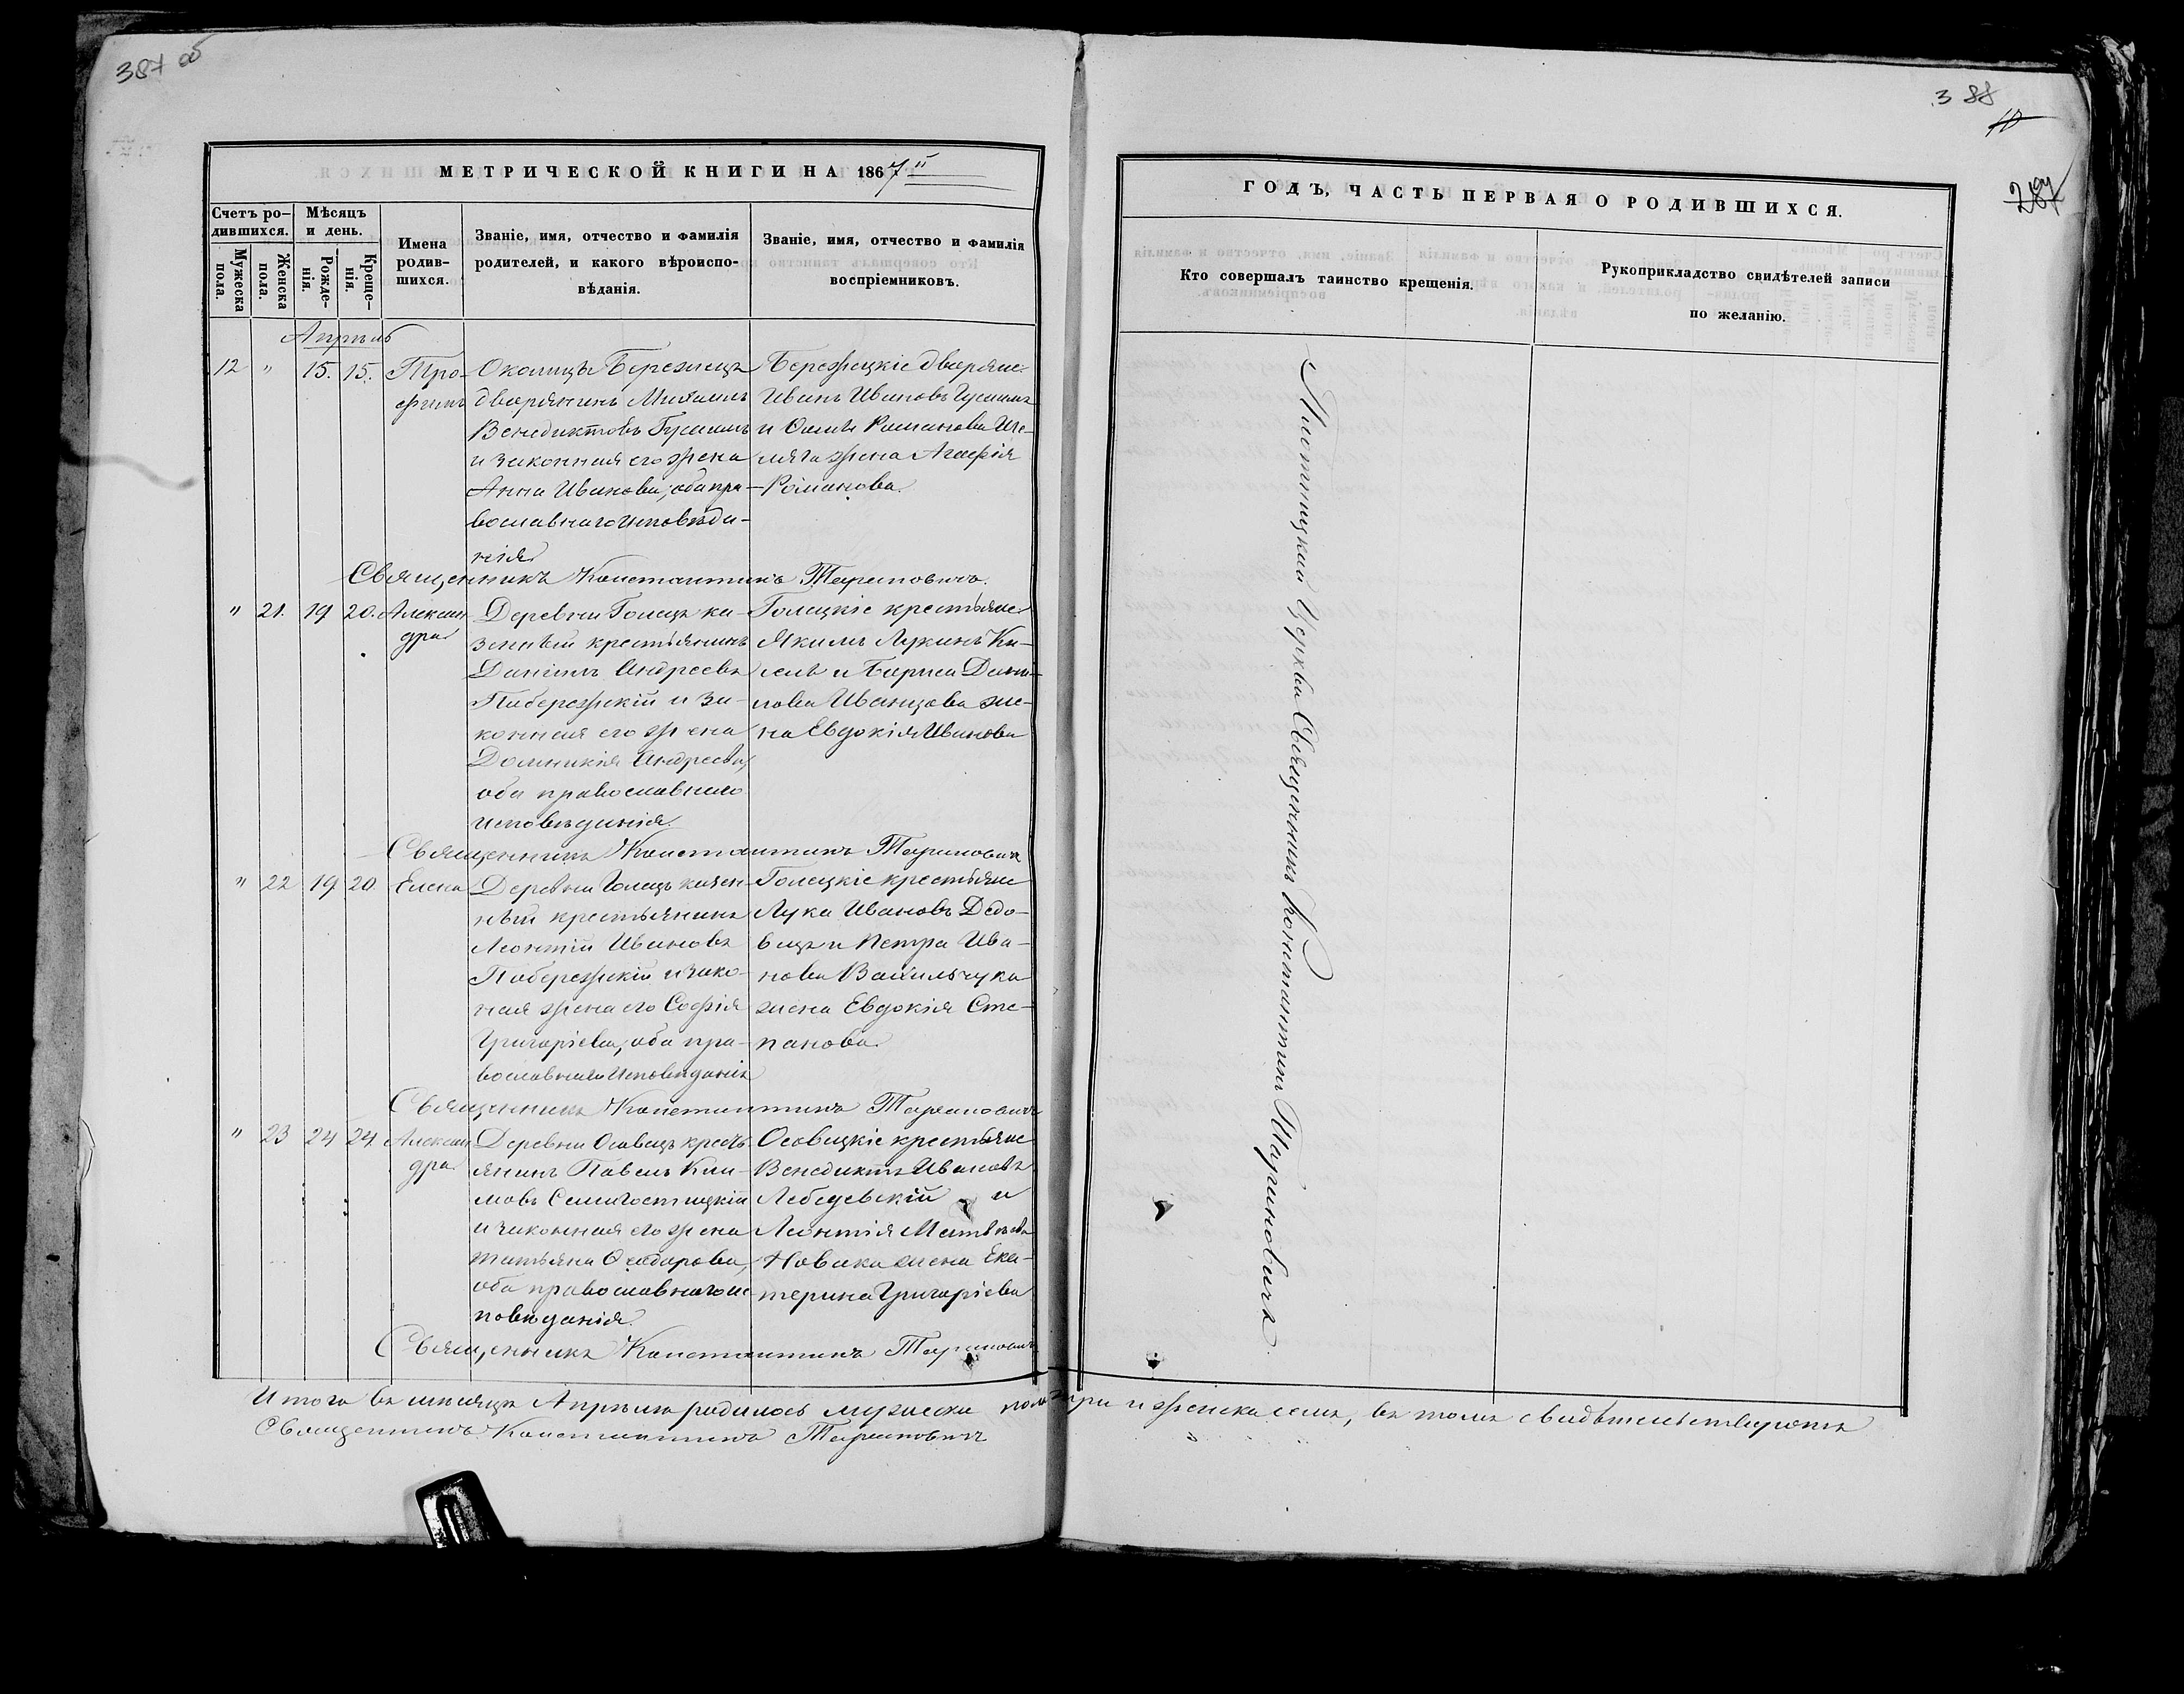 387 об
МЕТРИЧЕСКОЙ КНИГИ НА 1867й
Счетъ ро-
дившихся.
Мѣсяцъ
и день.
Мужеска
пола.
Женска
пола.
Рожде-
нія.
Креще-
нія.
Имена
родив-
шихся.
Званіе, имя, отчество и фамилія
родителей, и какого вѣроиспо-
вѣданія.
Званіе, имя, отчество и фамилія
воспріемниковъ.
Апрѣль
12 " 15. 15. Тро-
фимъ
Околицы Бережецъ
дворянинъ Михаилъ
Венедиктовъ Гусаимъ
и законная его жена
Анна Иванова, оба пра-
вославнаго исповѣда-
нія.
Бережецкіе дворяне
Иванъ Ивановъ
и Романова
жена Агафія
Романова.
Священникъ Константинъ Тариновичъ.
" 21. 19 20. Алексан
дра
Деревни Голецъ ка-
зенный крестьянинъ
Даніилъ Андреевъ
Побережскій и за-
конная его жена
Домникія Андреева,
оба православнаго
исповѣданія.
Голецкіе крестьяне
Якимъ Лукинъ Ки-
сель и Бориса Дани-
лова Иванцова же-
на Евдокія Иванова
Священникъ Константинъ Тариновичъ
" 22 19 20. Елена
Деревни Голецъ казен-
ный крестьянинъ
Леонтій Ивановъ
Побережскій и зако-
ная жена его Софія
Григоріева, оба пра-
вославнаго исповѣданія
Голецкіе крестьяне
Лука Ивановъ Дедо-
вецъ и Петра Ива-
нова Васильчука
жена Евдокія Сте-
панова.
Священникъ Константинъ Тариновичъ
" 23 24 24. Алексан
дра
Деревни Осовецъ кресть-
янинъ Павелъ Кли-
мовъ Семигостицкій
и законная его жена
Татьяна Ѳеодорова,
оба православнаго ис-
повѣданія.
Осовецкіе крестьяне
Венедиктъ Ивановъ
Лебедевскій и
Леонтія Матвѣева
Новака жена Ека-
терина Григоріева
Священникъ Константинъ Тариновичъ
Итого въ мѣсяцѣ Апрѣлѣ родилось мужеска пола три и женска семь, въ томъ свидѣтельствуютъ
Священникъ Константинъ Тариновичъ
388
10
287
ГОДЪ, ЧАСТЬ ПЕРВАЯ О РОДИВШИХСЯ.
Кто совершалъ таинство крещенія.
Рукоприкладство свидѣтелей записи
по желанію.
Церкви Священникъ Константинъ Тариновичъ